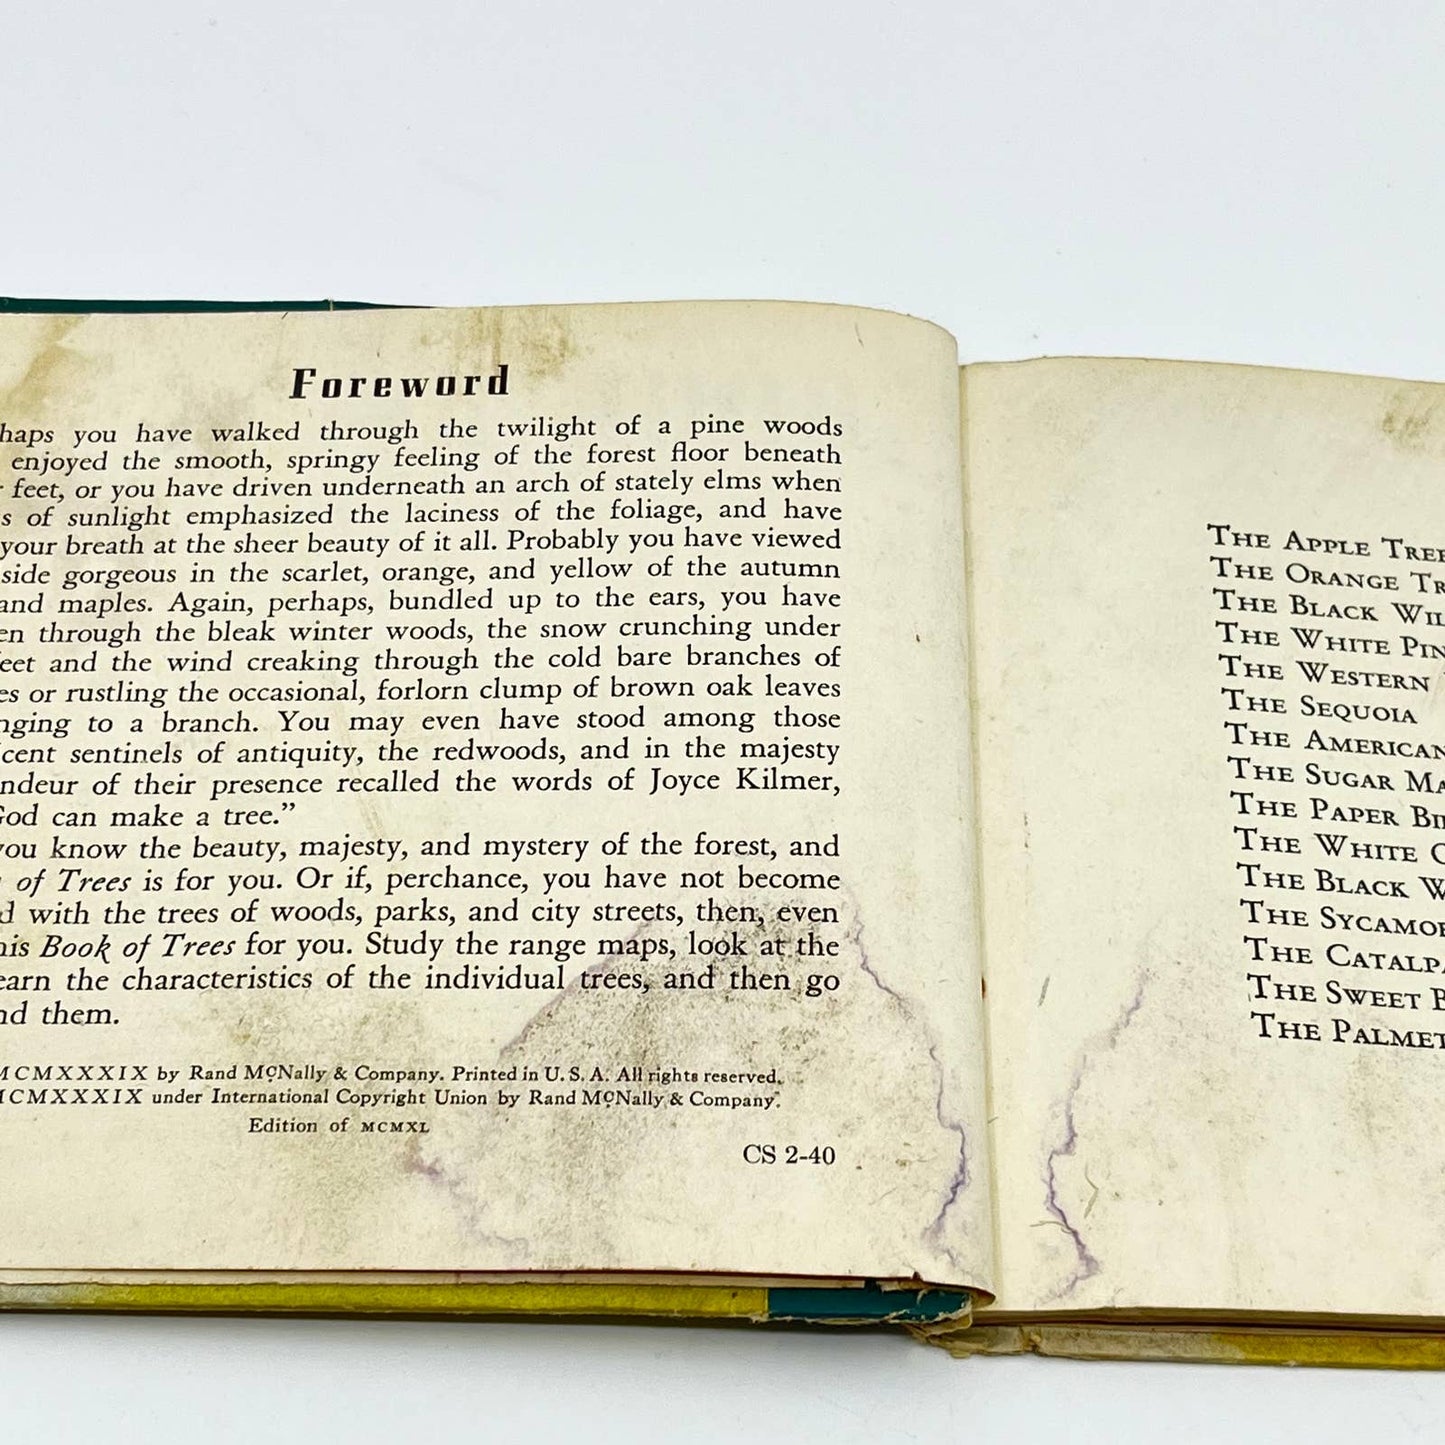 Foreword
haps you have walked through the twilight of a pine woods
enjoyed the smooth, springy feeling of the forest floor beneath
r feet, or you have driven underneath an arch of stately elms when
s of sunlight emphasized the laciness of the foliage, and have
your breath at the sheer beauty of it all. Probably you have viewed
side gorgeous in the scarlet, orange, and yellow of the autumn
and maples. Again, perhaps, bundled up to the ears, you have
en through the bleak winter woods, the snow crunching under
feet and the wind creaking through the cold bare branches of
es or rustling the occasional, forlorn clump of brown oak leaves
nging to a branch. You may even have stood among those
icent sentinels of antiquity, the redwoods, and in the majesty
ndeur of their presence recalled the words of Joyce Kilmer,
God can make a tree.”
you know the beauty, majesty, and mystery of the forest, and
of Trees is for you. Or if, perchance, you have not become
d with the trees of woods, parks, and city streets, then, even
his Book of Trees for you. Study the range maps, look at the
earn the characteristics of the individual trees, and then go
nd them.
MCMXXXIX by Rand McNally & Company. Printed in U. S. A. All rights reserved.
MCMXXXIX under International Copyright Union by Rand McNally & Company.
Edition of MCMXL
CS 2-40
THE APPLE TREE
THE ORANGE TR
THE BLACK WIL
THE WHITE PIN
THE WESTERN
THE SEQUOIA
THE AMERICAN
THE SUGAR MA
THE PAPER BI
THE WHITE
THE BLACK W
THE SYCAMO
THE CATALPA
THE SWEET B
THE PALMET